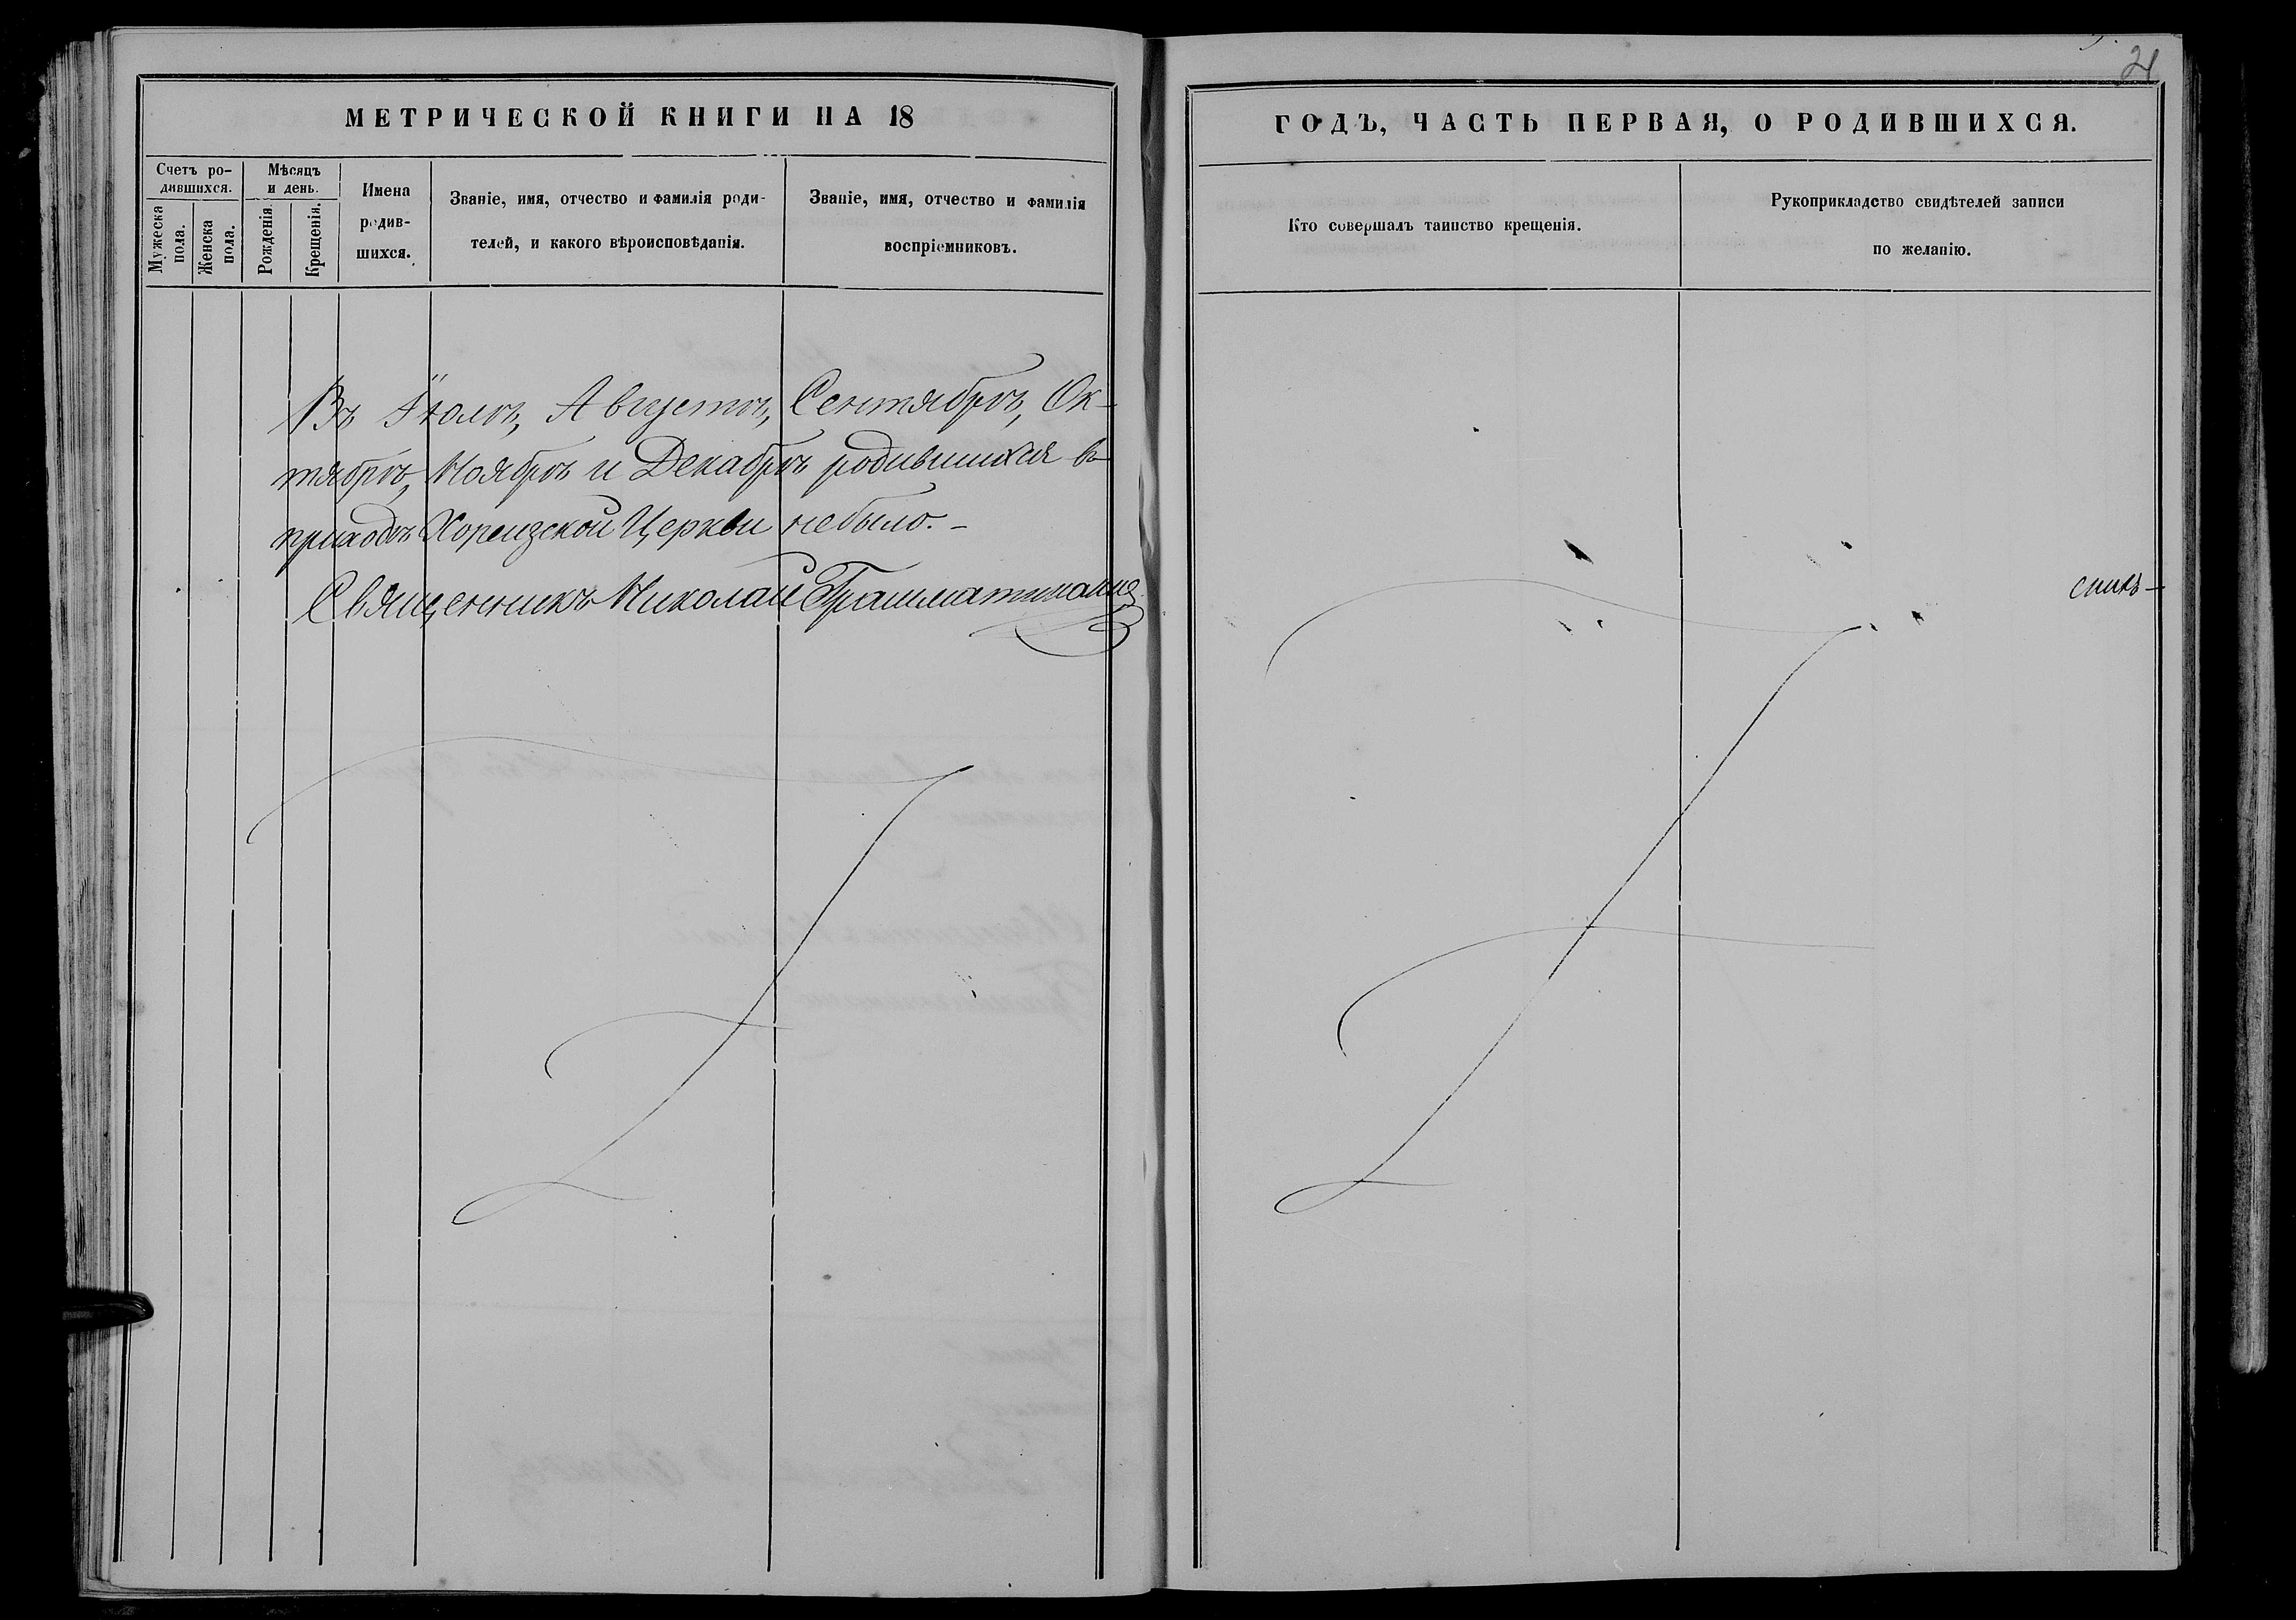 21
МЕТРИЧЕСКОЙ КНИГИ НА 18
ГОДЪ, ЧАСТЬ ПЕРВАЯ, О РОДИВШИХСЯ.
Счетъ ро-
дившихся.
Мужеска
пола.
Женска
пола.
Мѣсяцъ
и день.
Рожденія.
Крещенія.
Имена
родив-
шихся.
Званіе, имя, отчество и фамилія роди-
телей, и какого вѣроисповѣданія.
Званіе, имя, отчество и фамилія
воспріемниковъ.
Кто совершалъ таинство крещенія.
Рукоприкладство свидѣтелей записи
по желанію.
Въ Іюлѣ, Августѣ, Сентябрѣ, Ок-
тябрѣ, Ноябрѣ и Декабрѣ родившихся въ
приходѣ Хореизской Церкви не было. –
Священникъ Николай Грамматикати